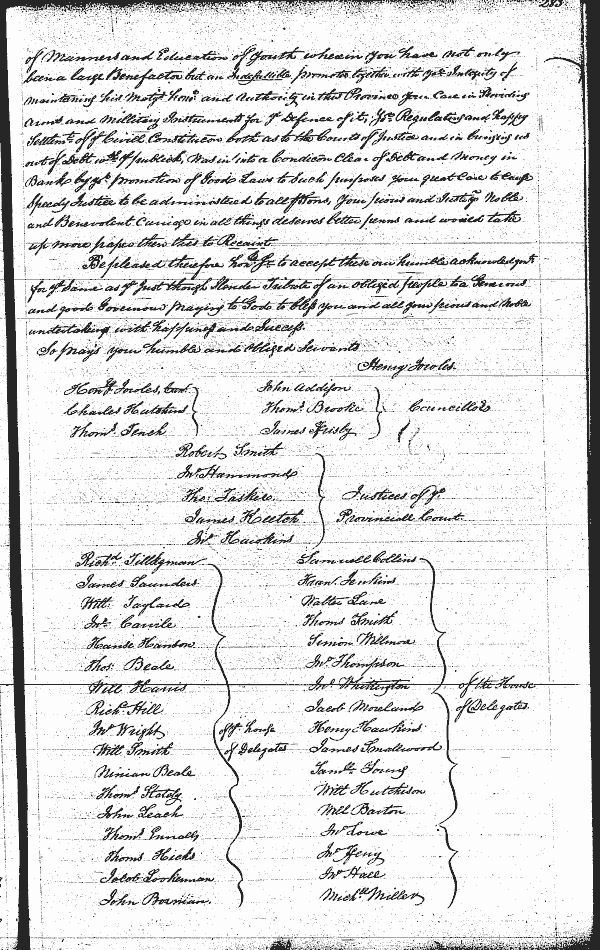 283
of Manners and Education of Youth wherein you have not only
been a large Benefactor but an Indefatible promoter together with yor Integrity of
maintaining his Matys honr and Authority in this Province your Care in Providing
Arms and Military Instruments for ye Defence of it; Yor Regulating and happy
Settlemt of ye Civill Constitucon both as to the Courts of Justice and in bringing us
out of Debt wch ye publick Was in into a Condicon Clear of Debt and Money in
Bank by yor promotion of Good Laws to Such purposes your great Care to Cause
Speedy Justice to be administred to all psons, Your pious and Just yor Noble
and Benevolent Carriage in all things deserves better penns and would take
up more paper then this to Recount
Be pleased therefore honble Sr to accept these our humble acknowledgmts
for ye Same as ye Just though Slender Tribute of an obliged people to a Generous
and good Governour praying to God to bless you and all your pious and Noble
undertakings with happiness and Success.
So prays your humble and obliged Servants
Henry Jowles
Charles Hutchins
Thoms Tench
John Addison
Thoms Brooke
James Frisby
Councillrs
Robert Smith
Jno Hammond
Tho: Tasker
James Keetch
Jno Hawkins
Justices of ye
Provinciall Court
Richd Tillighman
James Saunders
Will Taylard
Jno Carvile
Hanse Hanson
Thos: Beale
Will Harris
Richd Hill
Jno Wright
Will Smith
Ninian Beale
Thoms Stately
John Leach
Thoms Ennalls
Thoms Hicks
Jacob Lookerman
John Bosman.
of ye house
of Delegates
Samuell Collins
Fran: Jenkins
Walter Lane
Thoms Smith
Simon Willmor
Jno Thompson
Jno Whittington
Jacob Moreland
Henry Hawkins
James Smallwood
Samll Young
Will Hutchison
Will Barton
Jno Lowe
Jno Hall
Michll Miller
of the House
of Delegates